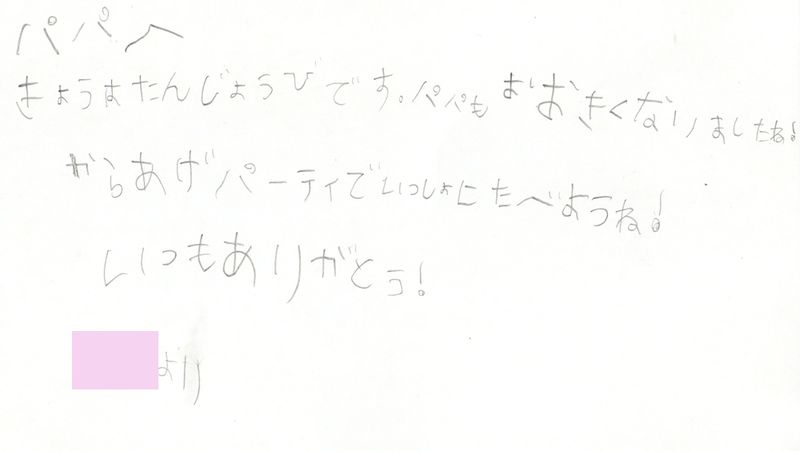 パパへ
きょうはたんじょうびです。パパもおおきくなりましたね!
からあげパーティでいっしょにたべようね!
いつもありがとう!
より